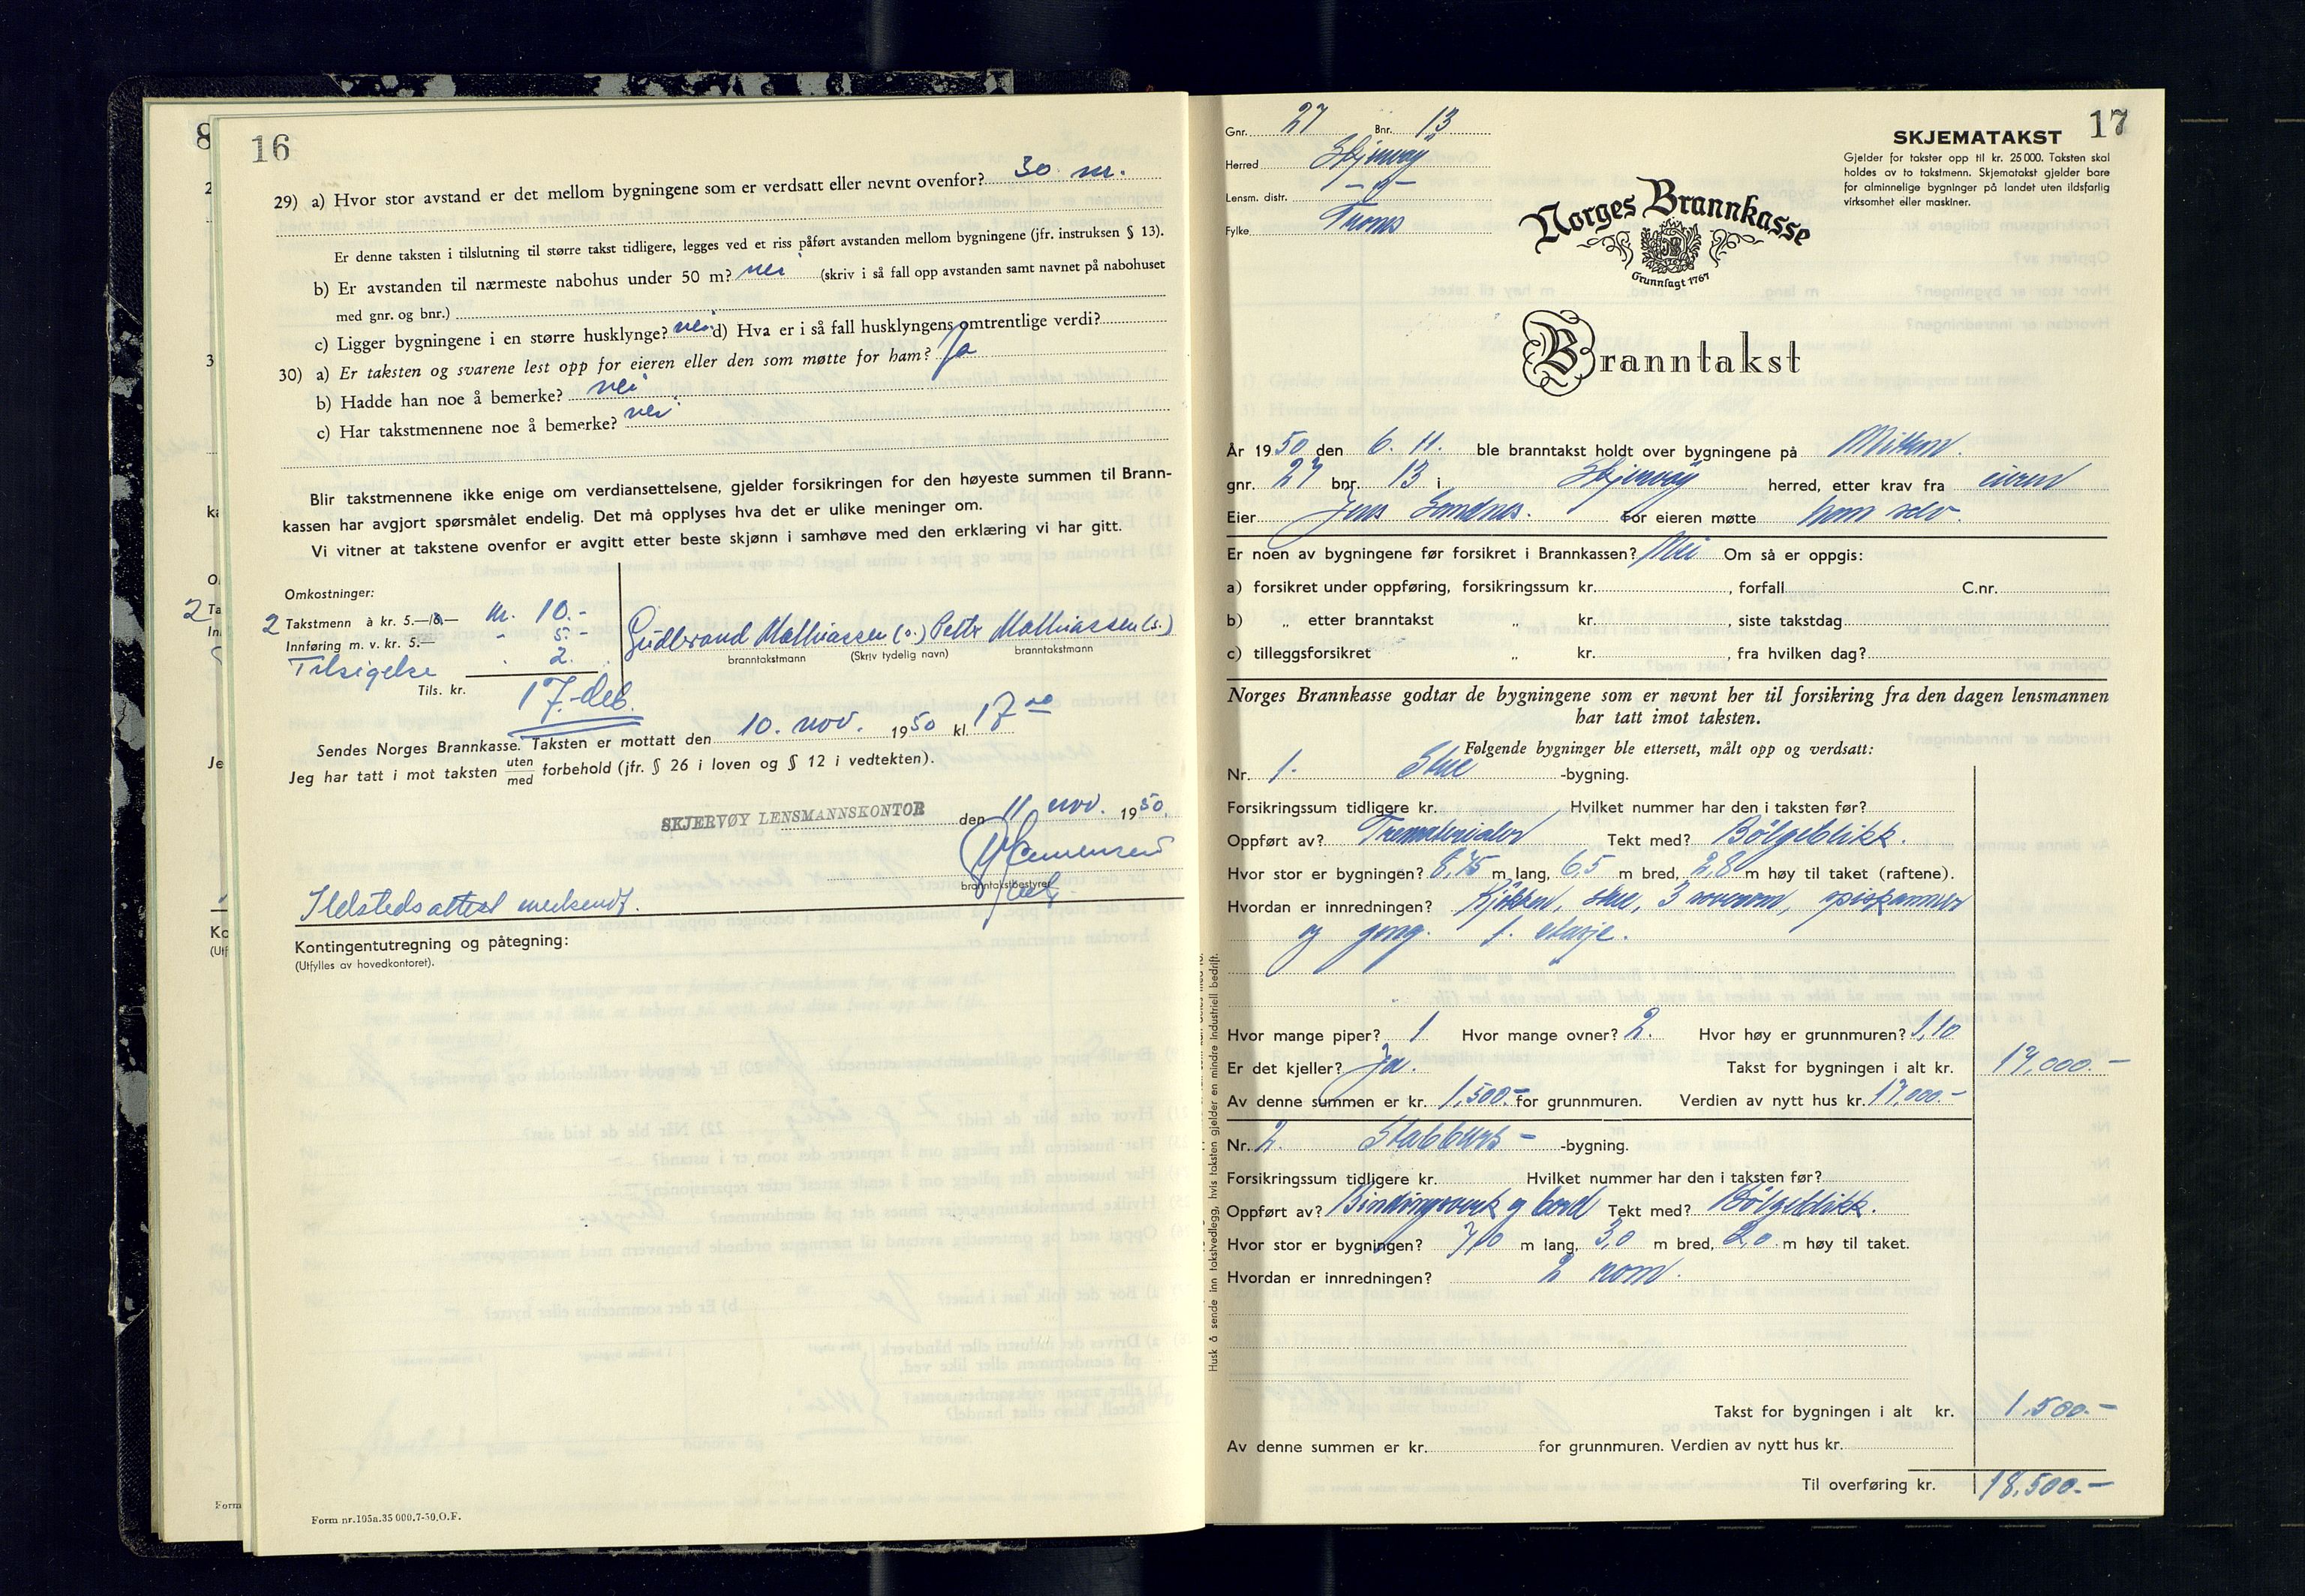 16
29) a) Hvor stor avstand er det mellom bygningene som er verdsatt eller nevnt ovenfor? 30 m.
Er denne taksten i tilslutning til større takst tidligere, legges ved et riss påført avstanden mellom bygningene (jfr. instruksen § 13).
b) Er avstanden til nærmeste nabohus under 50 m? nei (skriv i så fall opp avstanden samt navnet på nabohuset
med gnr. og bnr.)
c) Ligger bygningene i en større husklynge? nei d) Hva er i så fall husklyngens omtrentlige verdi?
30) a) Er taksten og svarene lest opp for eieren eller den som møtte for ham? Ja
b) Hadde han noe å bemerke? nei
c) Har takstmennene noe å bemerke? nei
Blir takstmennene ikke enige om verdiansettelsene, gjelder forsikringen for den høyeste summen til Brann-
kassen har avgjort spørsmålet endelig. Det må opplyses hva det er ulike meninger om.
Vi vitner at takstene ovenfor er avgitt etter beste skjønn i samhøve med den erklæring vi har gitt.
Omkostninger:
2 Takstmenn à kr. 5.— kr. 10.-
Innføring m. v. kr. 5.— - 5.-
Tilsigelse - 2.
Tils. kr. 17.- deb.
Gudbrand Mathiassen (s.) Petter Mathiassen (s.)
branntakstmann (Skriv tydelig navn) branntakstmann
Sendes Norges Brannkasse. Taksten er mottatt den 10. nov. 1950 kl. 17 00
Jeg har tatt i mot taksten uten/med forbehold (jfr. § 26 i loven og § 12 i vedtekten).
SKJERVØY LENSMANNSKONTOR den 11 nov. 1950.
branntakstbestyrer
Ildstedsattest medsendt.
Kontingentutregning og påtegning:
(Utfylles av hovedkontoret).
Form nr.105a.35 000.7-50.O.F.
17
Gnr. 27 Bnr. 13
Herred Skjervøy
Lensm. distr. -"-
Fylke Troms
SKJEMATAKST
Gjelder for takster opp til kr. 25 000. Taksten skal
holdes av to takstmenn. Skjematakst gjelder bare
for alminnelige bygninger på landet uten ildsfarlig
virksomhet eller maskiner.
Norges Brannkasse
Grunnlagt 1767
Branntakst
År 1950 den 6. 11. ble branntakst holdt over bygningene på
gnr. 27 bnr. 13 i Skjervøy herred, etter krav fra eieren
Eier Jens Sandnes. For eieren møtte han selv.
Er noen av bygningene før forsikret i Brannkassen? Nei Om så er oppgis:
a) forsikret under oppføring, forsikringssum kr. , forfall C.nr.
b) „ etter branntakst „ kr. , siste takstdag
c) tilleggsforsikret „ kr. , fra hvilken dag?
Norges Brannkasse godtar de bygningene som er nevnt her til forsikring fra den dagen lensmannen
har tatt imot taksten.
Følgende bygninger ble ettersett, målt opp og verdsatt:
Nr. 1. Stue -bygning.
Forsikringssum tidligere kr. Hvilket nummer har den i taksten før?
Oppført av? Trematerialer Tekt med? Bølgeblikk.
Hvor stor er bygningen? 8,75 m lang, 6,5 m bred, 2,80 m høy til taket (raftene).
Hvordan er innredningen? Kjøkken, stue, 3 soverom, spiskammer
og gang. 1. etasje.
Hvor mange piper? 1 Hvor mange ovner? 2. Hvor høy er grunnmuren? 1,10
Er det kjeller? Ja. Takst for bygningen i alt kr. 17,000.-
Av denne summen er kr. 1,500.- for grunnmuren. Verdien av nytt hus kr. 17,000.-
Nr. 2. Stabburs- -bygning.
Forsikringssum tidligere kr. Hvilket nummer har den i taksten før?
Oppført av? Bindingsverk og bord Tekt med? Bølgeblikk.
Hvor stor er bygningen? m lang, 3,0 m bred, 2,0 m høy til taket.
Hvordan er innredningen? 2 rom.
Takst for bygningen i alt kr. 1,500.-
Av denne summen er kr. for grunnmuren. Verdien av nytt hus kr.
Til overføring kr. 18,500.-